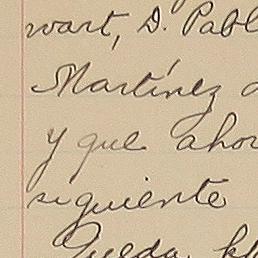 wart, D. Pabl
Martínez
y que ahor
siguiente
Queda